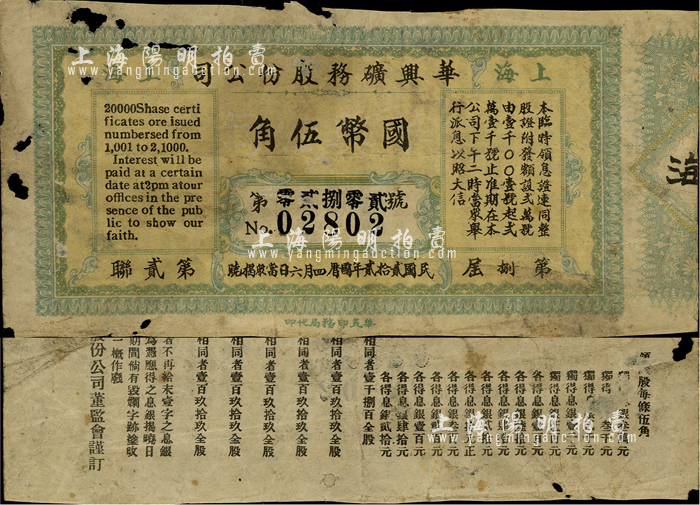 上海
華興礦務股份公司
上海
20000Shase certi
ficates ore issued
numbersed from
1,001 to 2,1000.
Interest will be
paid at a certain
date at2pm atour
offices in the pre
sence of the pub
lic to show our
faith.
國幣伍角
第零貳捌零貳號
No. 02802
本臨時領息證連同整
股證附發額設弍萬號
由壹千〇〇壹號起弍
萬壹千號止准期在本
公司下午二時當衆舉
行派息以照大信
第捌屆
第貳聯
民國貳拾貳年國曆四月六日當衆揭曉
華美印務局代印
海
股每條伍角
獨得
獨得
獨得
各得息銀壹百元
各得息銀肆拾元
各得息銀貳拾元
相同者壹千捌百全股
相同者壹百玖拾玖全股
相同者壹百玖拾玖全股
相同者壹百玖拾玖全股
相同者壹百玖拾玖全股
相同者壹百玖拾玖全股
者不再給末壹字之息銀
為憑應得之息銀揭曉日
期間倘有毀爛字跡塗改
一概作廢
股份公司董監會謹訂
上海陽明拍賣
www.yangmingauction.com
上海陽明拍賣
www.yangmingauction.com
上海陽明拍賣
www.yangmingauction.com
上海陽明拍賣
www.yangmingauction.com